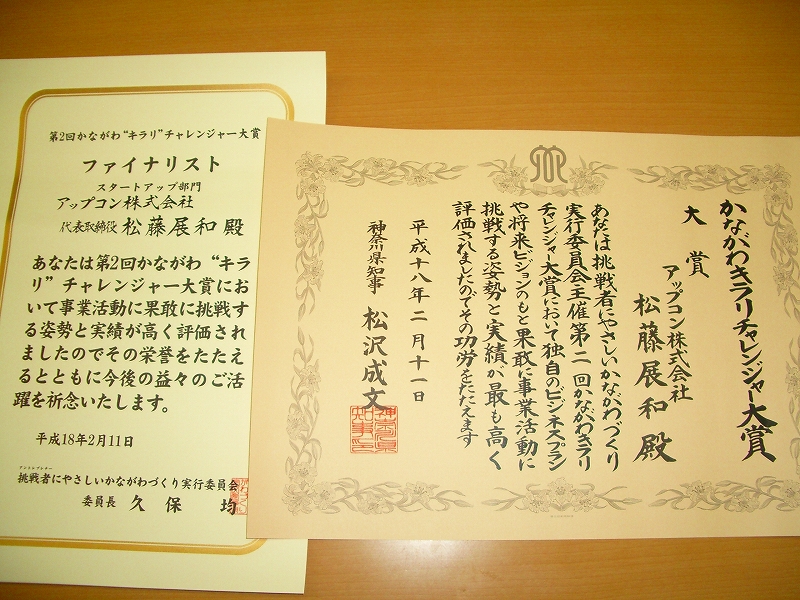 第2回かながわ“キラリ”チャレンジャー大賞
ファイナリスト
スタートアップ部門
アップコン株式会社
代表取締役 松藤展和 殿
あなたは第2回かながわ“キラ
リ”チャレンジャー大賞にお
いて事業活動に果敢に挑戦す
る姿勢と実績が高く評価され
ましたのでその栄誉をたたえ
るとともに今後の益々のご活
躍を祈念いたします。
平成18年2月11日
アントレプレナー
挑戦者にやさしいかながわづくり実行委員会
委員長 久保 均
かながわキラリチャレンジャー大賞
大賞
アップコン株式会社
松藤展和 殿
あなたは挑戦者にやさしいかながわづくり
実行委員会主催第二回かながわキラリ
チャレンジャー大賞において独自のビジネスプラン
や将来ビジョンのもと果敢に事業活動に
挑戦する姿勢と実績が最も高く
評価されましたのでその功労をたたえます
平成十八年二月十一日
神奈川県知事 松沢成文
神奈川県
知事印